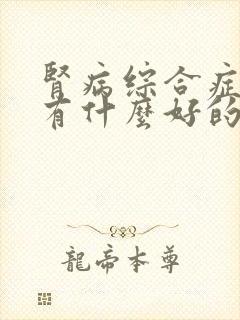 腎病綜合症
有什麼好的
龍帝本尊